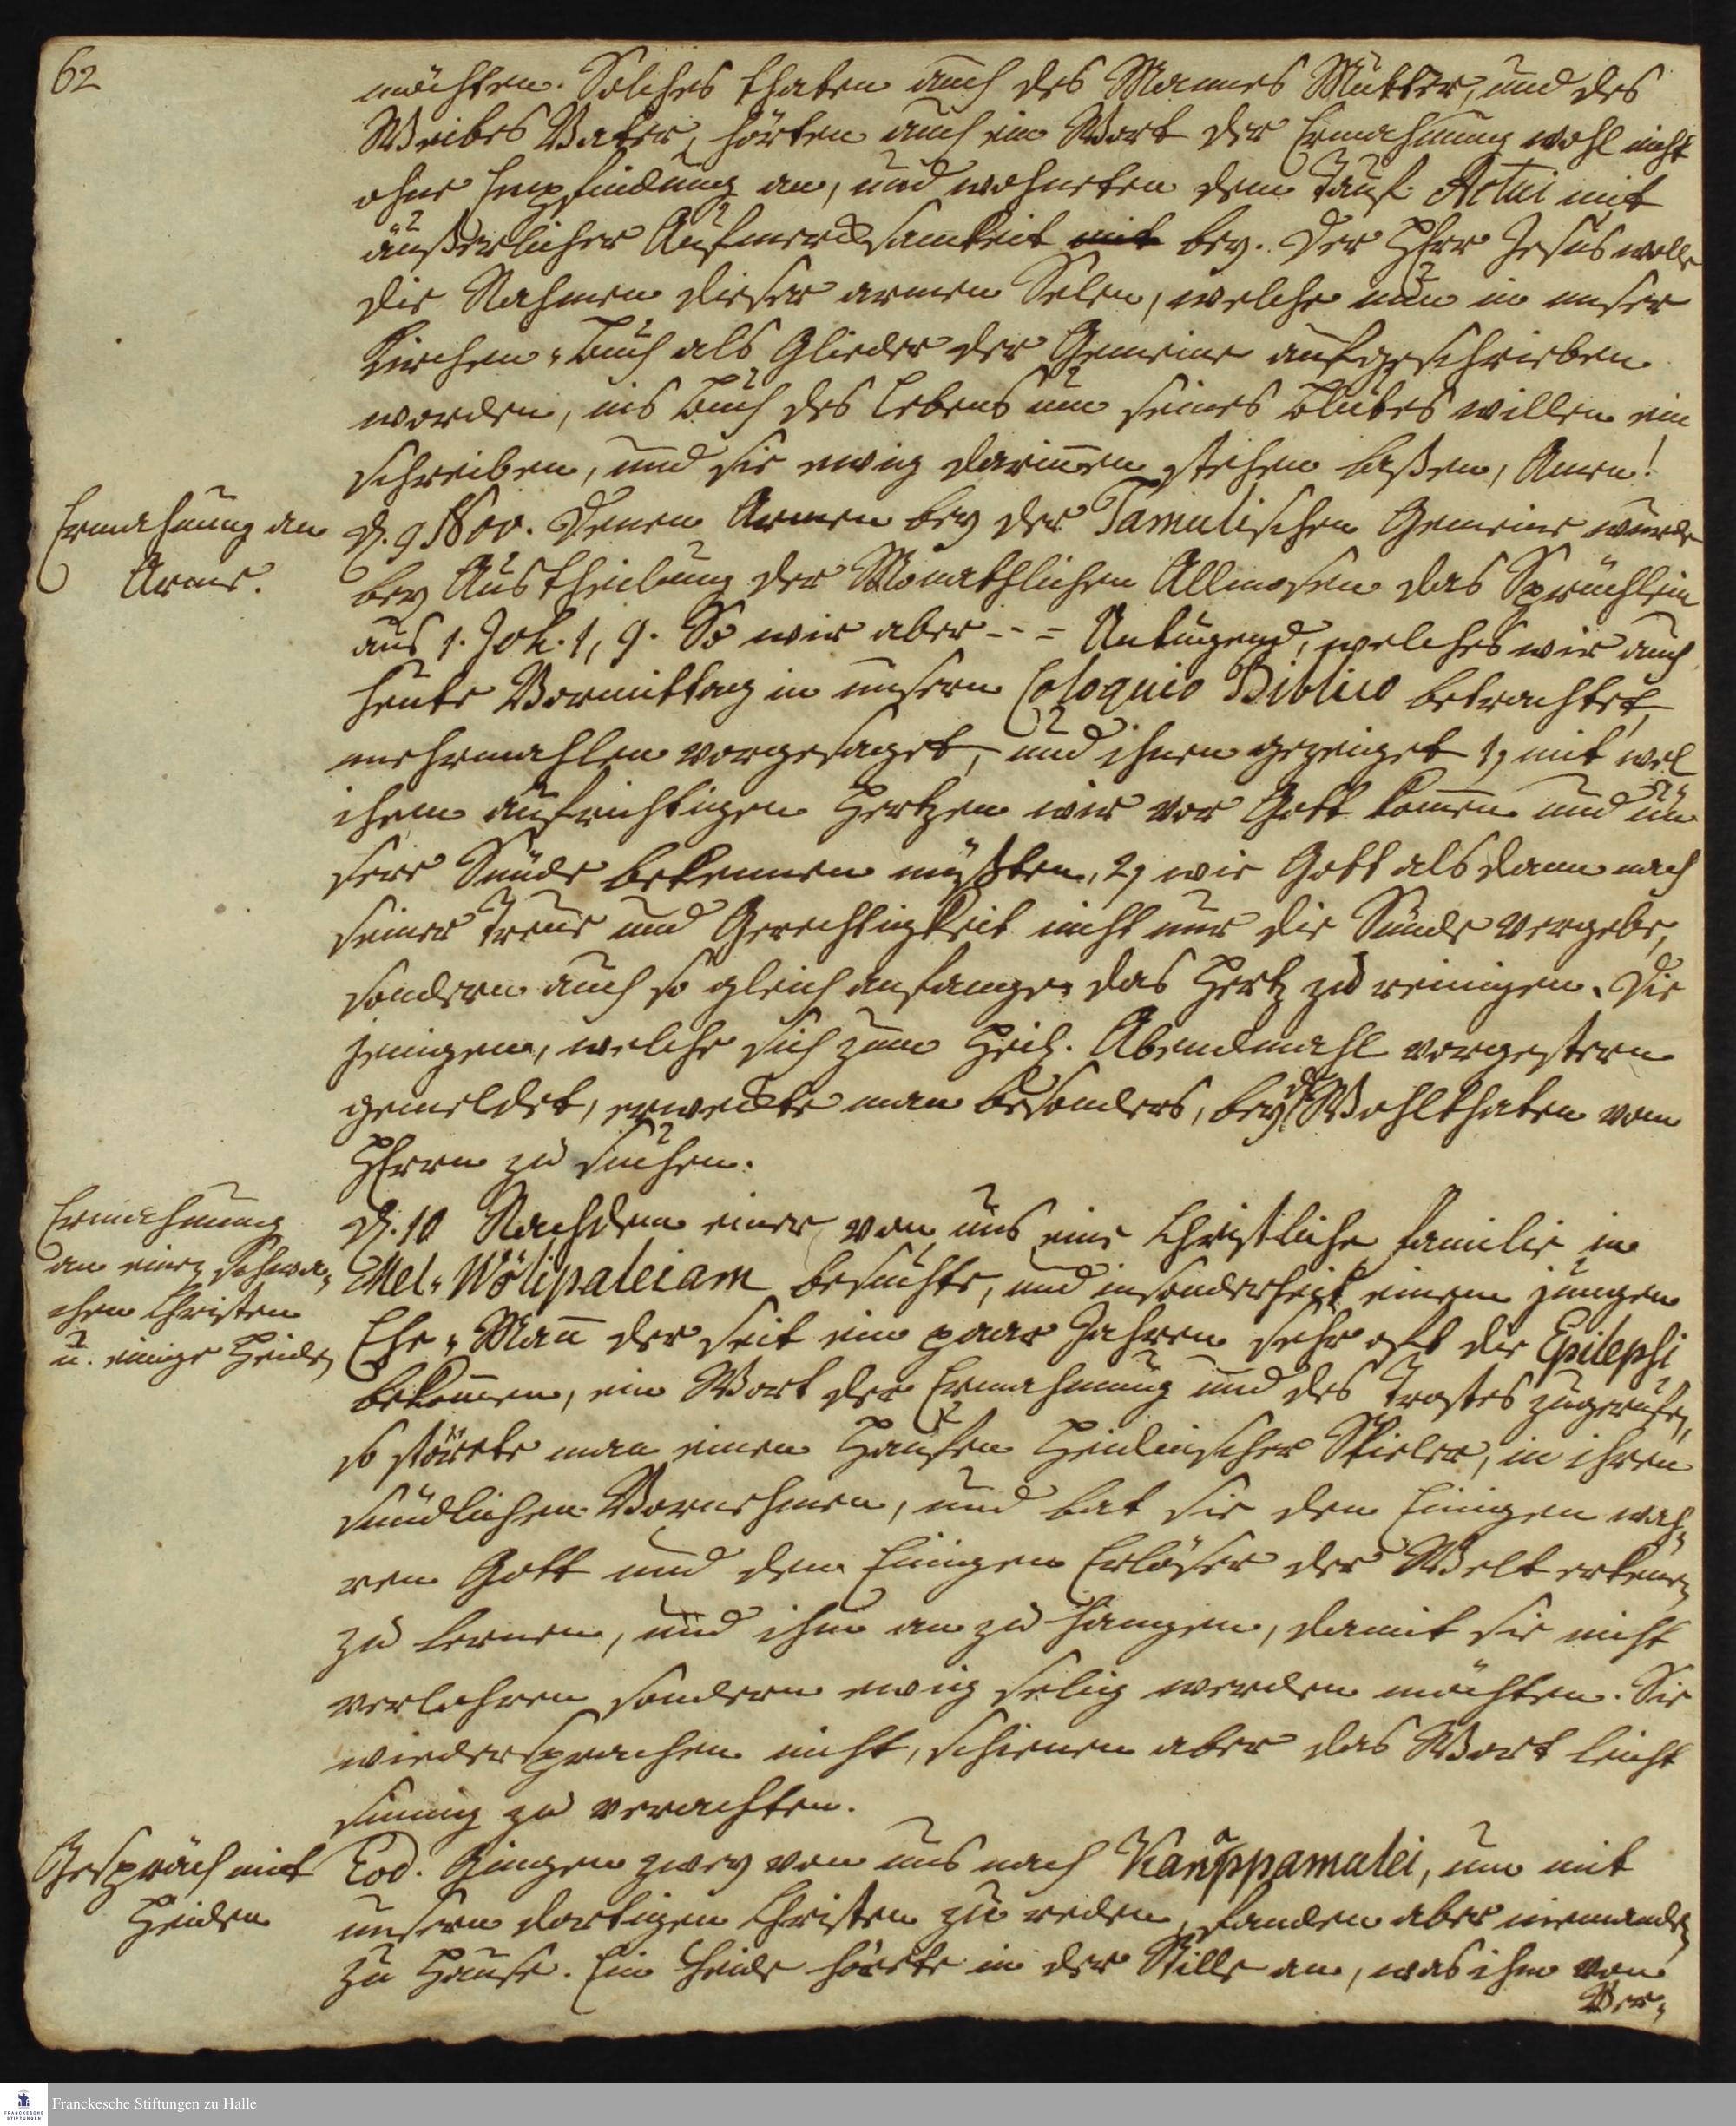 62
möchten. Solches thaten auch des Mannes Mutter, und des
Weibes Vater, hörten auch ein Wort der Ermahnung wohl nicht
ohne Empfindung an, und wohneten dem Tauf Actui mit
äußerlicher Aufmercksamkeit mit bey. Der HErr Jesus wolle
die Nahmen dieser armen Selen, welche nun in unser
Kirchen-Buch als Glieder der Gemeine aufgeschrieben
worden, ins Buch des Lebens um seines Blutes willen ein
schreiben, und sie ewig darinnen stehen laßen, Amen!
Ermahnung an
Arme.
D. 9 Nov. Denen Armen bey der Tamulischen Gemeine wurde
bey Austheilung der Monathlichen Allmosen das Sprüchlein
aus 1. Joh. 1, 9. So wir aber - - = Untugend, welches wir auch
heute Vormittag in unserm Coloquio Biblico betrachtet,
mehrmahlen vorgesaget, und ihnen gezeiget 1, mit wel
chem aufrichtigen Hertzen wir vor Gott kommen und un
sere Sünde bekennen müßten, 2, wie Gott als dann nach
seiner Treue und Gerechtigkeit nicht nur die Sünde vergebe,
sondern auch so gleich anfange, das Hertz zu reinigen. Die
jenigen, welche sich zum Heil. Abendmahl vorgestern
gemeldet, erweckte man besonders, beyde Wohlthaten vom
HErrn zu suchen.
Ermahnung
an einen schwa-
chen Christen
u. einige Heiden
D. 10 Nachdem einer von uns eine Christliche Familie in
Mel-Wölipaleiam besuchte, und insonderheit einem jungen
Ehe-Mann der seit ein paar Jahren sehr oft die Epilepsi
bekommen, ein Wort der Ermahnung und des Trostes zugerufen,
so störete man einen Haufen Heidnischer Spieler, in ihren
sündlichen Vornehmen, und bat sie den Einigen wah-
ren Gott und den Einigen Erlöser der Welt erkennen
zu lernen, und ihm an zu hangen, damit sie nicht
verlohren sondern ewig selig werden möchten. Sie
wiedersprachen nicht, schienen aber das Wort leicht
sinnig zu verachten.
Gespräch mit
Heiden
Eod. Gingen zwey von uns nach Karuppamalei, um mit
unsern dortigen Christen zu reden, fanden aber niemanden
zu Hause. Ein Heide hörete in der Stille an, was ihm von
Ver-
Franckesche Stiftungen zu Halle